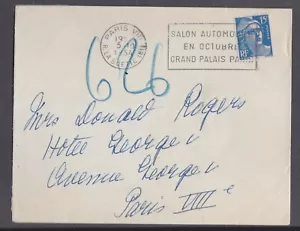 PARIS VIII
R. LA BOETIE
SALON AUTOMOBILE
EN OCTOBRE
GRAND PALAIS PARIS
15F
RF
616
Mrs Donald Rogers
Hotel George V
Avenue George V
Paris VIIIe